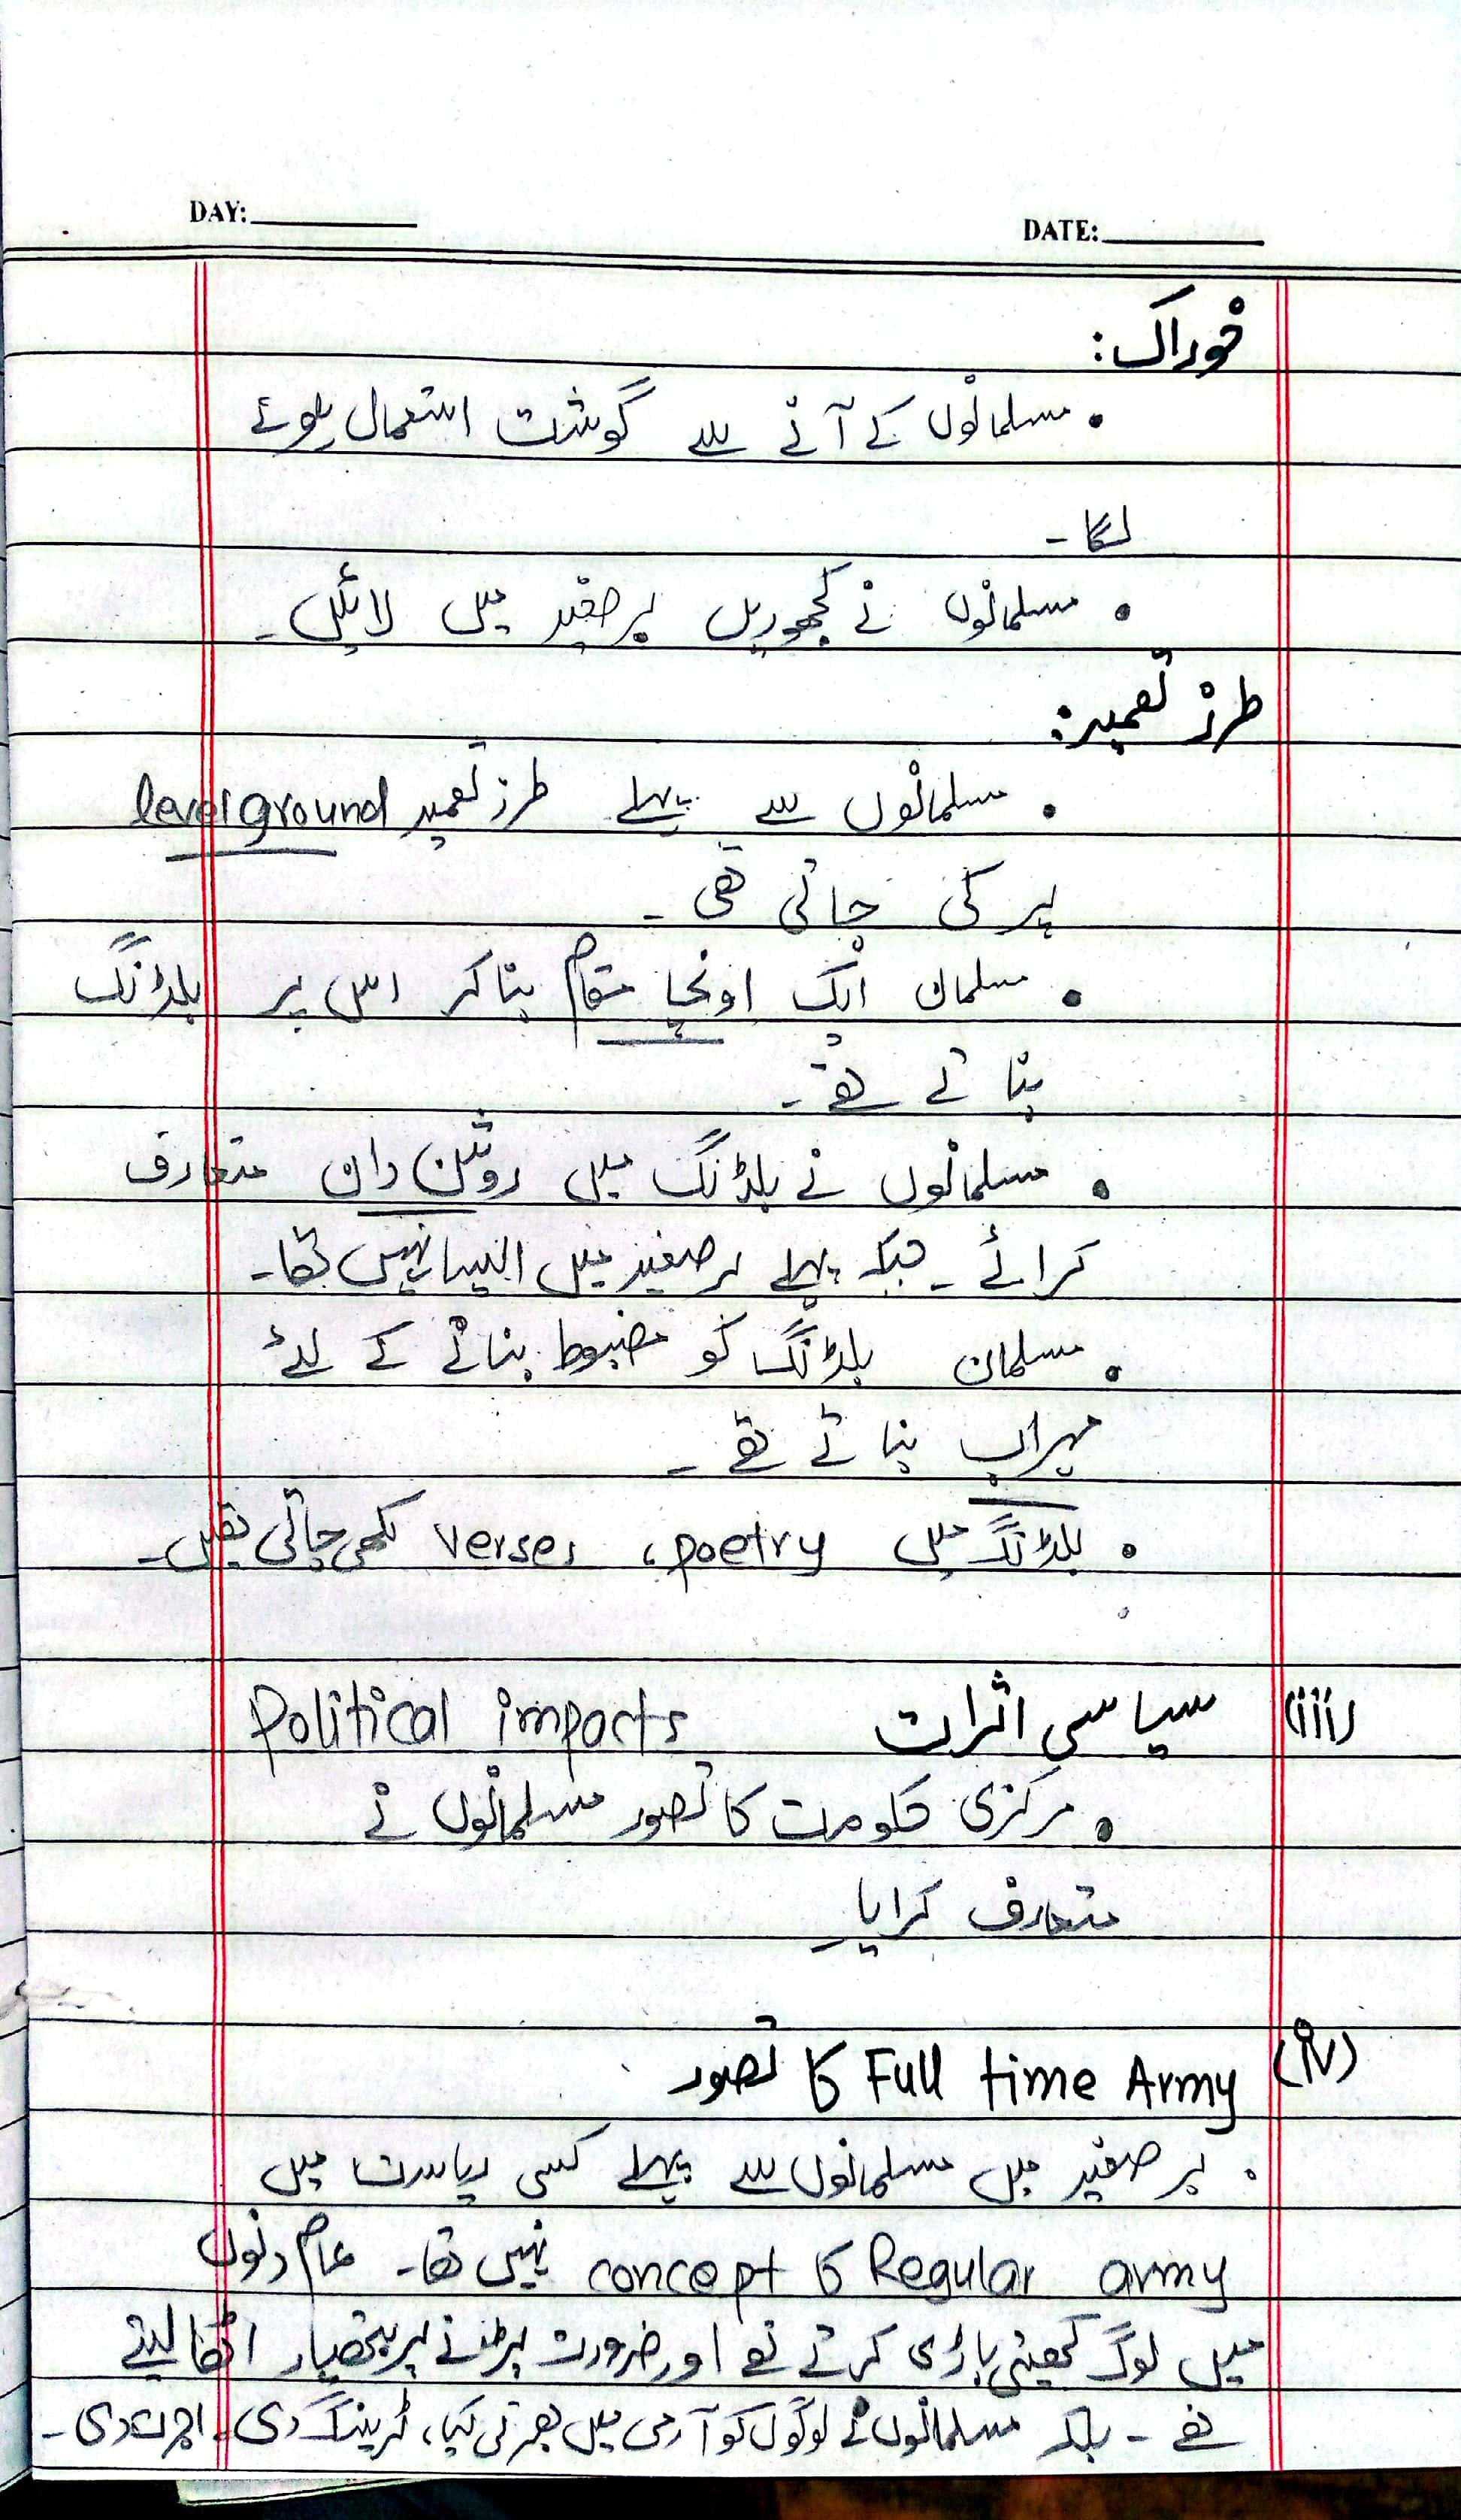 DAY: DATE:
خوراک:
• مسلمانوں کے آنے سے گوشت استعمال ہونے
لگا۔
• مسلمانوں نے کھجوریں برصغیر میں لائیں۔
طرز تعمیر:
• مسلمانوں سے پہلے طرز تعمیر level ground
پر کی جاتی تھی۔
• مسلمان ایک اونچا مقام بنا کر اس پر بلڈنگ
بناتے تھے۔
• مسلمانوں نے بلڈنگ میں روشن دان متعارف
کرائے۔ جبکہ پہلے برصغیر میں ایسا نہیں تھا۔
• مسلمان بلڈنگ کو مضبوط بنانے کے لئے
میراب بناتے تھے۔
• بلڈنگ میں poetry، verses لکھی جاتی تھیں۔
(iii) سیاسی اثرات Political impacts
• مرکزی حکومت کا تصور مسلمانوں نے
متعارف کرایا۔
(iv) Full time Army کا تصور
• برصغیر میں مسلمانوں سے پہلے کسی ریاست میں
Regular army کا concept نہیں تھا۔ عام دنوں
میں لوگ کھیتی باڑی کرتے تھے اور ضرورت پڑنے پر ہتھیار اٹھا لیتے
تھے۔ بلکہ مسلمانوں نے لوگوں کو آرمی میں بھرتی کیا، ٹریننگ دی۔ اجرت دی۔